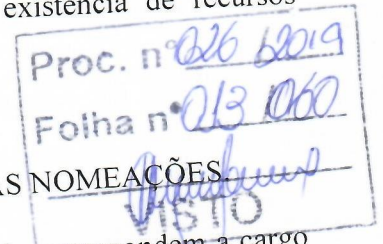 existência de recursos
Proc. nº 026 / 2019
Folha nº 013 060
AS NOMEAÇÕES.
VISTO
a cargo